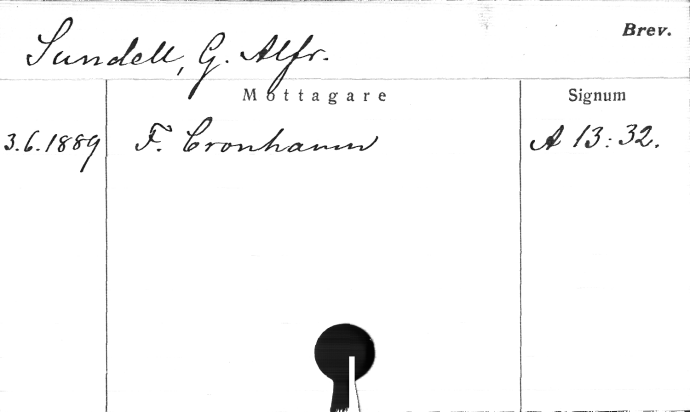 Brev.
Sundell, G. Alfr.
Mottagare Signum
3.6.1889 F. Cronhamn A 13:32.